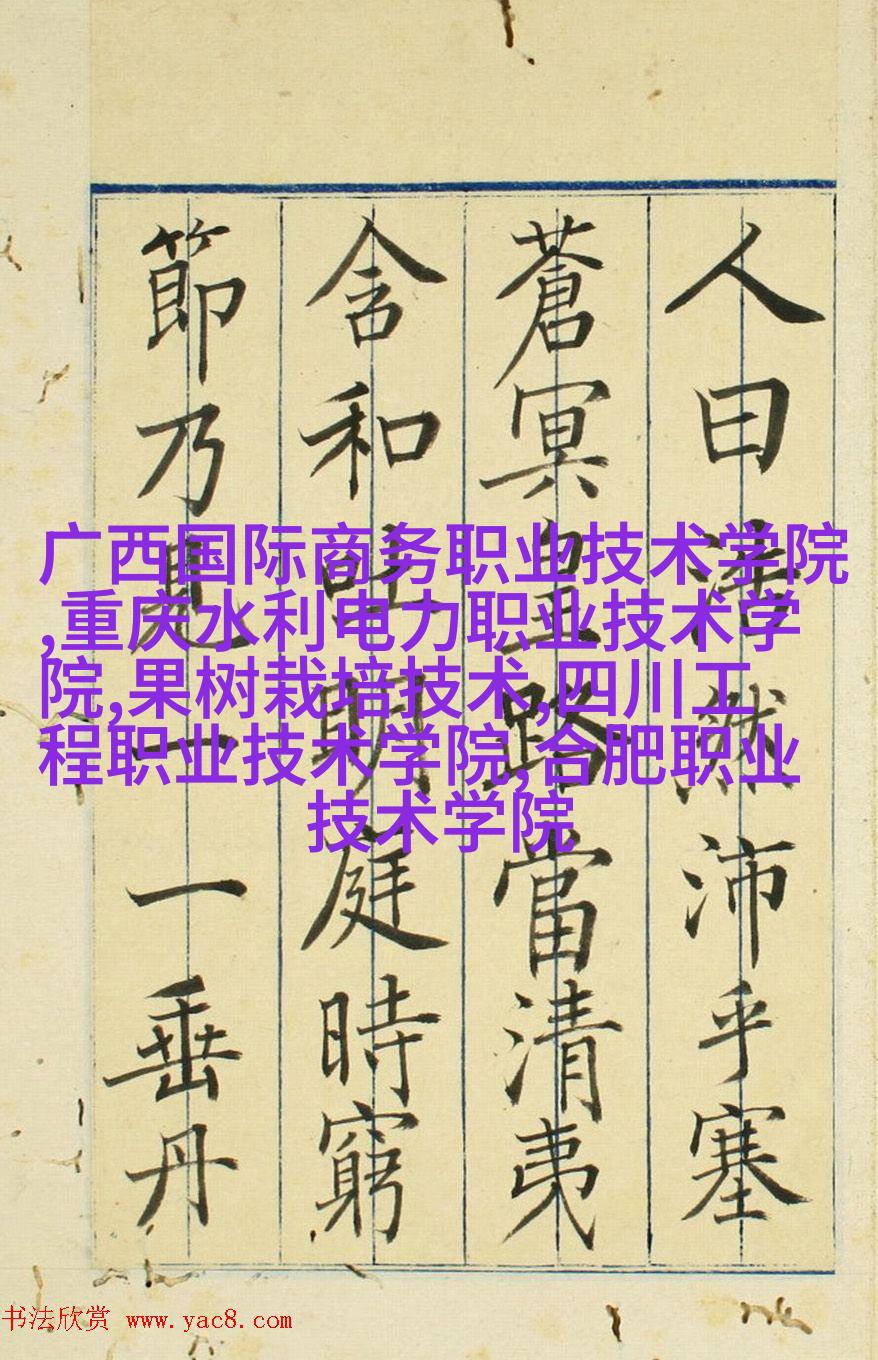 人曰浩然沛乎塞
蒼冥皇路當清夷
含和吐明庭時窮
節乃見一一垂丹
广西国际商务职业技术学院
,重庆水利电力职业技术学
院,果树栽培技术,四川工
程职业技术学院,合肥职业
技术学院
书法欣赏 www.yac8.com